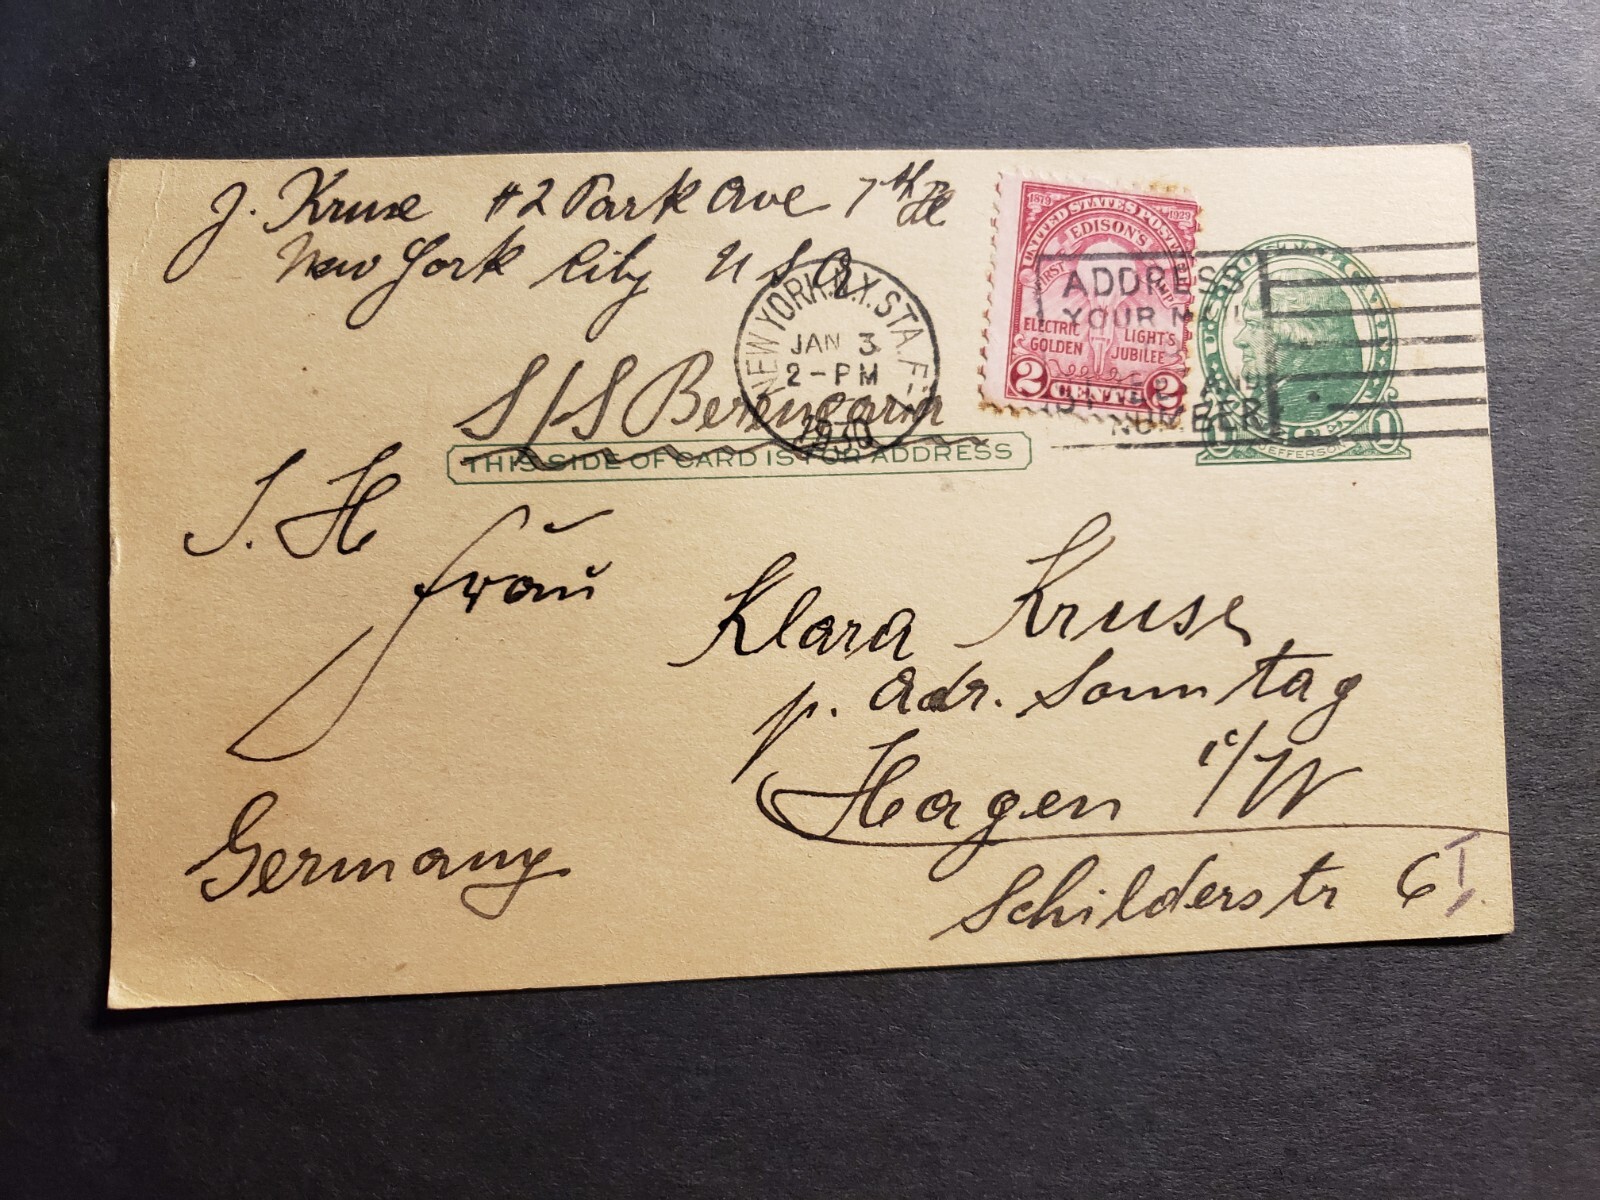 J. Kruse #2 Park Ave 7th Fl
New York City U S A
NEW YORK, N.Y. STA. F.
JAN 3
2-PM
1930
1879 1929
UNITED STATES POSTAGE
EDISON'S
FIRST LAMP
ELECTRIC LIGHT'S
GOLDEN JUBILEE
2 CENTS 2
ADDRESS
YOUR MAIL
TO STREET AND
NUMBER
JEFFERSON
S/S Berengaria
THIS SIDE OF CARD IS FOR ADDRESS
S. H
Frau
Klara Kruse
p. Adr. Sonntag
Hagen i/W
Schilderstr 6
Germany